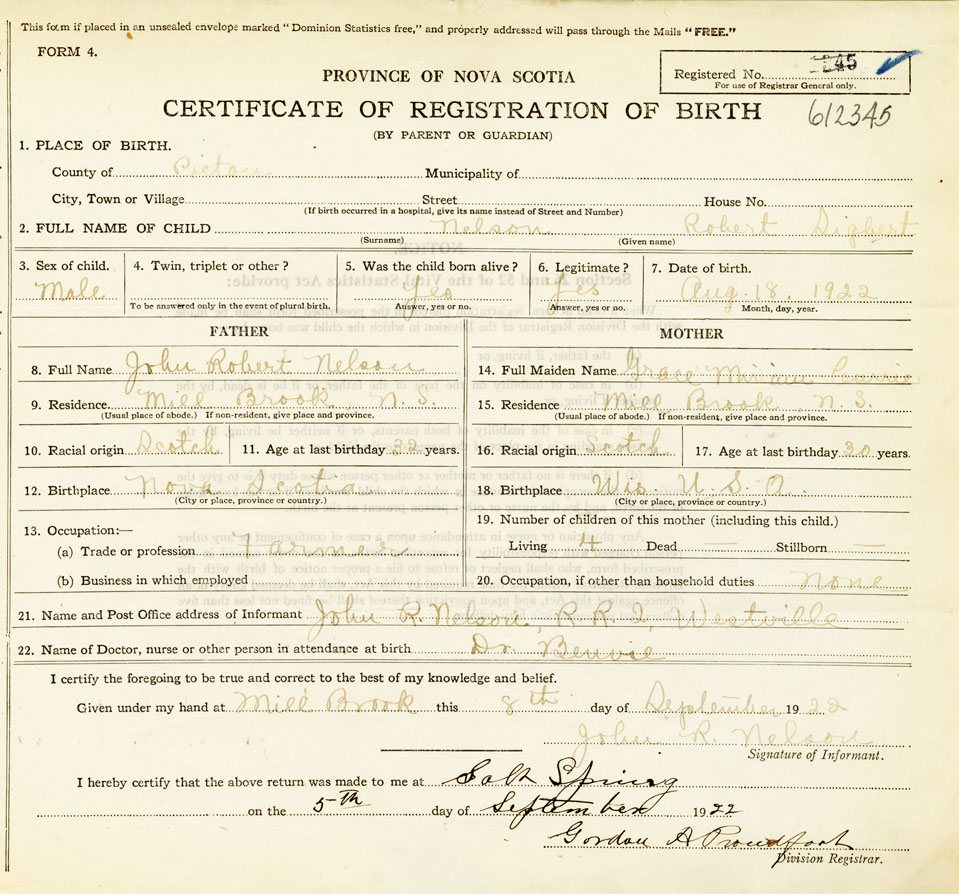 This form if placed in an unsealed envelope marked "Dominion Statistics free," and properly addressed will pass through the Mails "FREE."
FORM 4.
PROVINCE OF NOVA SCOTIA
Registered No. 1245
For use of Registrar General only.
CERTIFICATE OF REGISTRATION OF BIRTH
612345
(BY PARENT OR GUARDIAN)
1. PLACE OF BIRTH.
County of Pictou Municipality of
City, Town or Village Street House No.
(If birth occurred in a hospital, give its name instead of Street and Number)
2. FULL NAME OF CHILD Nelson Robert Digbert
(Surname) (Given name)
3. Sex of child. 4. Twin, triplet or other? 5. Was the child born alive? 6. Legitimate? 7. Date of birth.
Male Yes Yes Aug. 18, 1922
To be answered only in the event of plural birth. Answer, yes or no. Answer, yes or no. Month, day, year.
FATHER
8. Full Name John Robert Nelson
9. Residence Mill Brook, N. S.
(Usual place of abode.) If non-resident, give place and province.
10. Racial origin Scotch 11. Age at last birthday 32 years.
12. Birthplace Nova Scotia
(City or place, province or country.)
13. Occupation:—
(a) Trade or profession Farmer
(b) Business in which employed
MOTHER
14. Full Maiden Name Grace Miriam Currie
15. Residence Mill Brook, N. S.
(Usual place of abode.) If non-resident, give place and province.
16. Racial origin Scotch 17. Age at last birthday 30 years.
18. Birthplace Wis. U. S. A.
(City or place, province or country.)
19. Number of children of this mother (including this child.)
Living 4 Dead — Stillborn —
20. Occupation, if other than household duties None
21. Name and Post Office address of Informant John R. Nelson, R. R. 2, Westville
22. Name of Doctor, nurse or other person in attendance at birth Dr. Benvie
I certify the foregoing to be true and correct to the best of my knowledge and belief.
Given under my hand at Mill Brook this 8th day of September 1922
John R. Nelson
Signature of Informant.
I hereby certify that the above return was made to me at Salt Spring
on the 5th day of September 1922
Gordon A Proudfoot
Division Registrar.